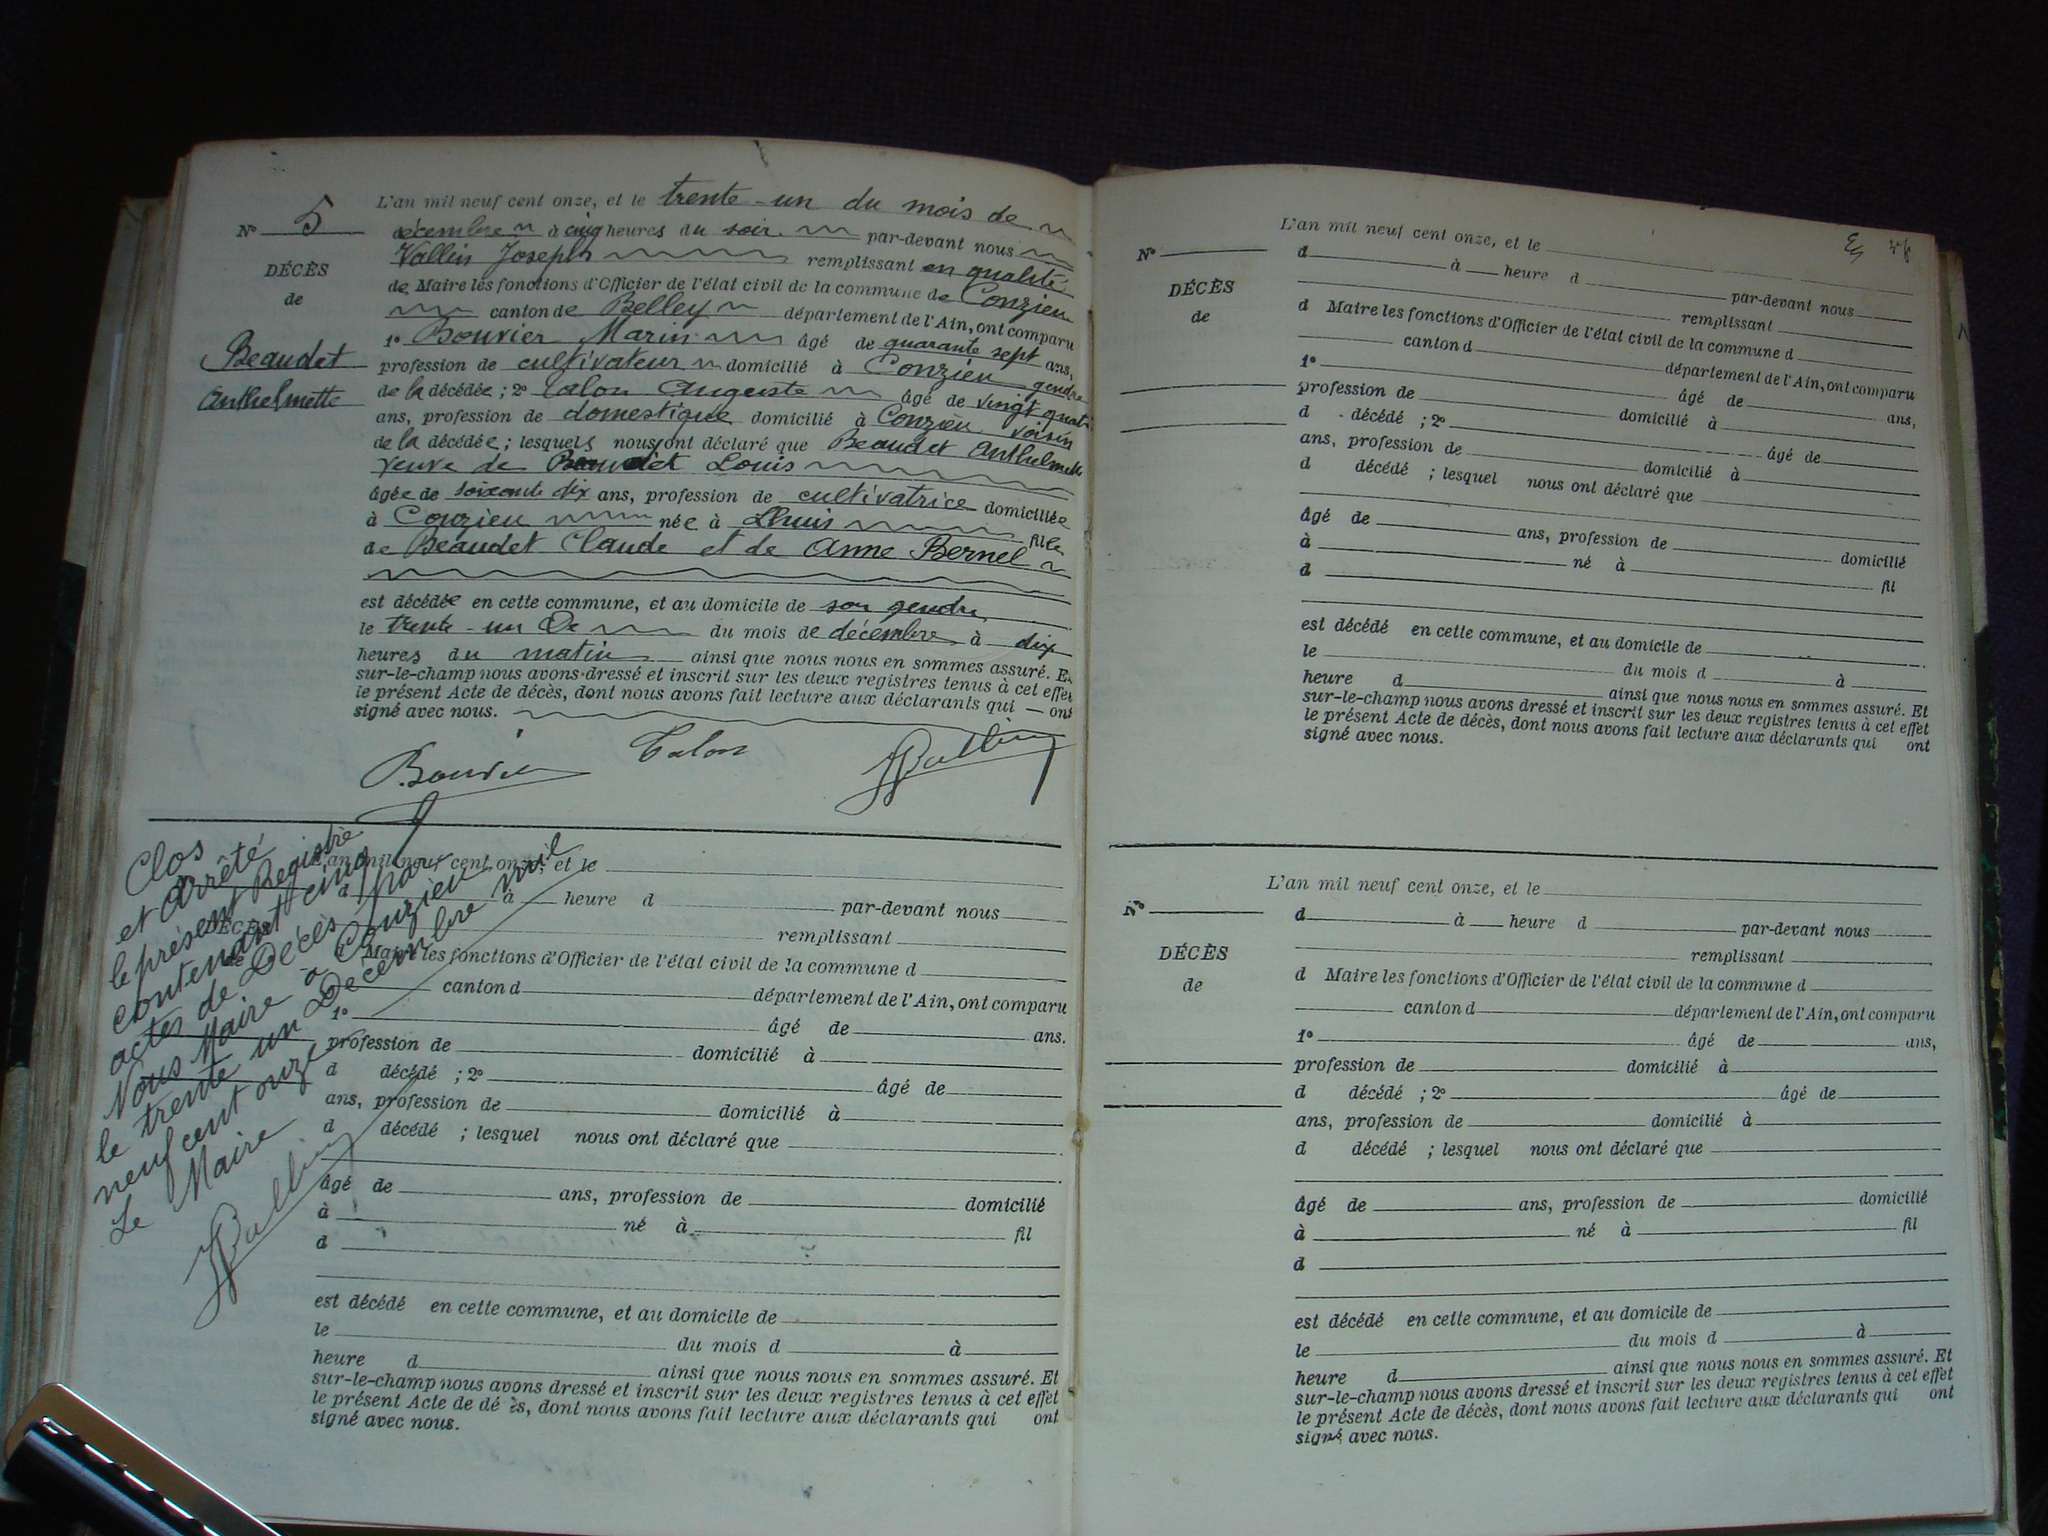 L'an mil neuf cent onze, et le trente-un du mois de
N° 5
décembre à cinq heures du soir par-devant nous
Vallin Joseph remplissant en qualité
DÉCÈS
de Maire les fonctions d'Officier de l'état civil de la commune de Conzieu
de
canton de Belley département de l'Ain, ont comparu
1° Bouvier Marin âgé de quarante sept ans,
Beaudet
profession de cultivateur domicilié à Conzieu gendre
Anthelmette
de la décédée ; 2° Talon Auguste âgé de vingt quatre
ans, profession de domestique domicilié à Conzieu voisin
de la décédée ; lesquels nous ont déclaré que Beaudet Anthelmette
veuve de Beaudet Louis
âgée de soixante dix ans, profession de cultivatrice domiciliée
à Conzieu née à Lhuis fille
de Beaudet Claude et de Anne Bernel
est décédée en cette commune, et au domicile de son gendre
le trente-un De du mois de décembre à dix
heures du matin ainsi que nous nous en sommes assuré. Et
sur-le-champ nous avons dressé et inscrit sur les deux registres tenus à cet effet
le présent Acte de décès, dont nous avons fait lecture aux déclarants qui — ont
signé avec nous.
Bouvier Talon JVallin
Clos
et arrêté
le présent Registre
contenant cinq
actes de Décès par
Nous Maire à Conzieu
le trente un Décembre mil
neuf cent onze
Le Maire
JVallin
L'an mil neuf cent onze, et le
d à heure d par-devant nous
DÉCÈS
remplissant
de
Maire les fonctions d'Officier de l'état civil de la commune d
canton d département de l'Ain, ont comparu
1° âgé de ans.
profession de domicilié à
d décédé ; 2° âgé de
ans, profession de domicilié à
d décédé ; lesquel nous ont déclaré que
âgé de ans, profession de domicilié
à né à fil
d
est décédé en cette commune, et au domicile de
le du mois d à
heure d ainsi que nous nous en sommes assuré. Et
sur-le-champ nous avons dressé et inscrit sur les deux registres tenus à cet effet
le présent Acte de décès, dont nous avons fait lecture aux déclarants qui ont
signé avec nous.
L'an mil neuf cent onze, et le
N°
d à heure d par-devant nous
DÉCÈS
remplissant
de
d Maire les fonctions d'Officier de l'état civil de la commune d
canton d département de l'Ain, ont comparu
1° âgé de ans,
profession de domicilié à
d décédé ; 2° âgé de
ans, profession de domicilié à
d décédé ; lesquel nous ont déclaré que
âgé de ans, profession de domicilié
à né à fil
d
est décédé en cette commune, et au domicile de
le du mois d à
heure d ainsi que nous nous en sommes assuré. Et
sur-le-champ nous avons dressé et inscrit sur les deux registres tenus à cet effet
le présent Acte de décès, dont nous avons fait lecture aux déclarants qui ont
signé avec nous.
L'an mil neuf cent onze, et le
N°
d à heure d par-devant nous
DÉCÈS
remplissant
de
d Maire les fonctions d'Officier de l'état civil de la commune d
canton d département de l'Ain, ont comparu
1° âgé de ans,
profession de domicilié à
d décédé ; 2° âgé de
ans, profession de domicilié à
d décédé ; lesquel nous ont déclaré que
âgé de ans, profession de domicilié
à né à fil
d
est décédé en cette commune, et au domicile de
le du mois d à
heure d ainsi que nous nous en sommes assuré. Et
sur-le-champ nous avons dressé et inscrit sur les deux registres tenus à cet effet
le présent Acte de décès, dont nous avons fait lecture aux déclarants qui ont
signé avec nous.